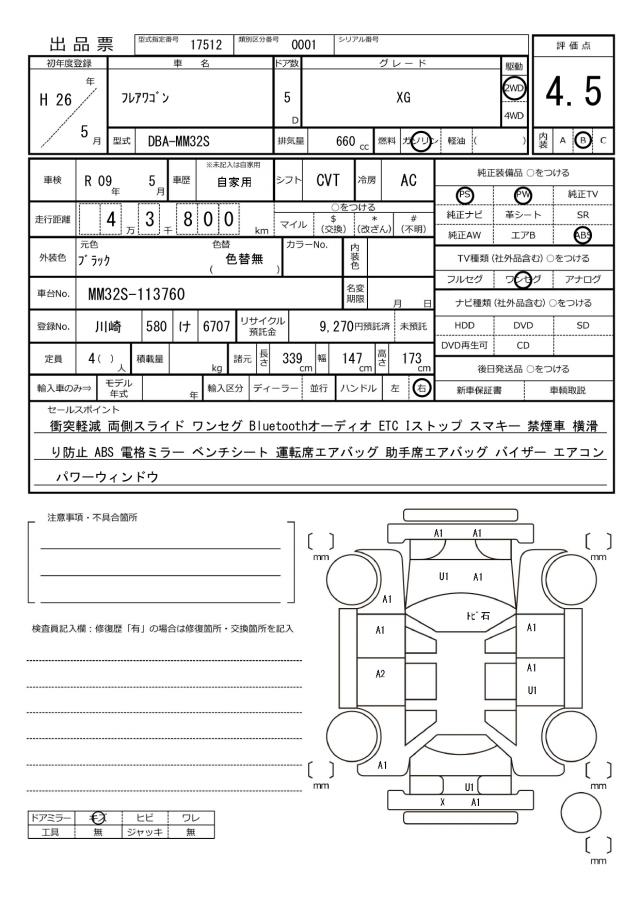 出品票 型式指定番号 17512 類別区分番号 0001 シリアル番号
評価点
4.5
内装 A B C
初年度登録 車名 ドア数 グレード 駆動
H 26 年 フレアワゴン 5 D XG 2WD
5 月 4WD
型式 DBA-MM32S 排気量 660 cc 燃料 ガソリン 軽油 ( )
車検 R 09 年 5 月 車歴 ※未記入は自家用 自家用 シフト CVT 冷房 AC
走行距離 4 万 3 千 8 0 0 km
○をつける
マイル $ (交換) * (改ざん) # (不明)
外装色 元色 ブラック 色替 ( 色替無 ) カラーNo. 内装色
車台No. MM32S-113760 名変期限 月 日
登録No. 川崎 580 け 6707 リサイクル預託金 9,270円預託済 未預託
定員 4 ( ) 人 積載量 kg 諸元 長さ 339 cm 幅 147 cm 高さ 173 cm
輸入車のみ⇒ モデル年式 年 輸入区分 ディーラー 並行 ハンドル 左 右
純正装備品 ○をつける
PS PW 純正TV
純正ナビ 革シート SR
純正AW エアB ABS
TV種類 (社外品含む) ○をつける
フルセグ ワンセグ アナログ
ナビ種類 (社外品含む) ○をつける
HDD DVD SD
DVD再生可 CD
後日発送品 ○をつける
新車保証書 車輌取説
セールスポイント
衝突軽減 両側スライド ワンセグ Bluetoothオーディオ ETC Iストップ スマキー 禁煙車 横滑
り防止 ABS 電格ミラー ベンチシート 運転席エアバッグ 助手席エアバッグ バイザー エアコン
パワーウィンドウ
注意事項・不具合箇所
検査員記入欄：修復歴「有」の場合は修復箇所・交換箇所を記入
ドアミラー キズ ヒビ ワレ
工具 無 ジャッキ 無
A1 A1
mm mm
U1 A1
A1
トビ石
A1 A1
A2 A1
U1
A1
mm mm
U1
X A1
mm